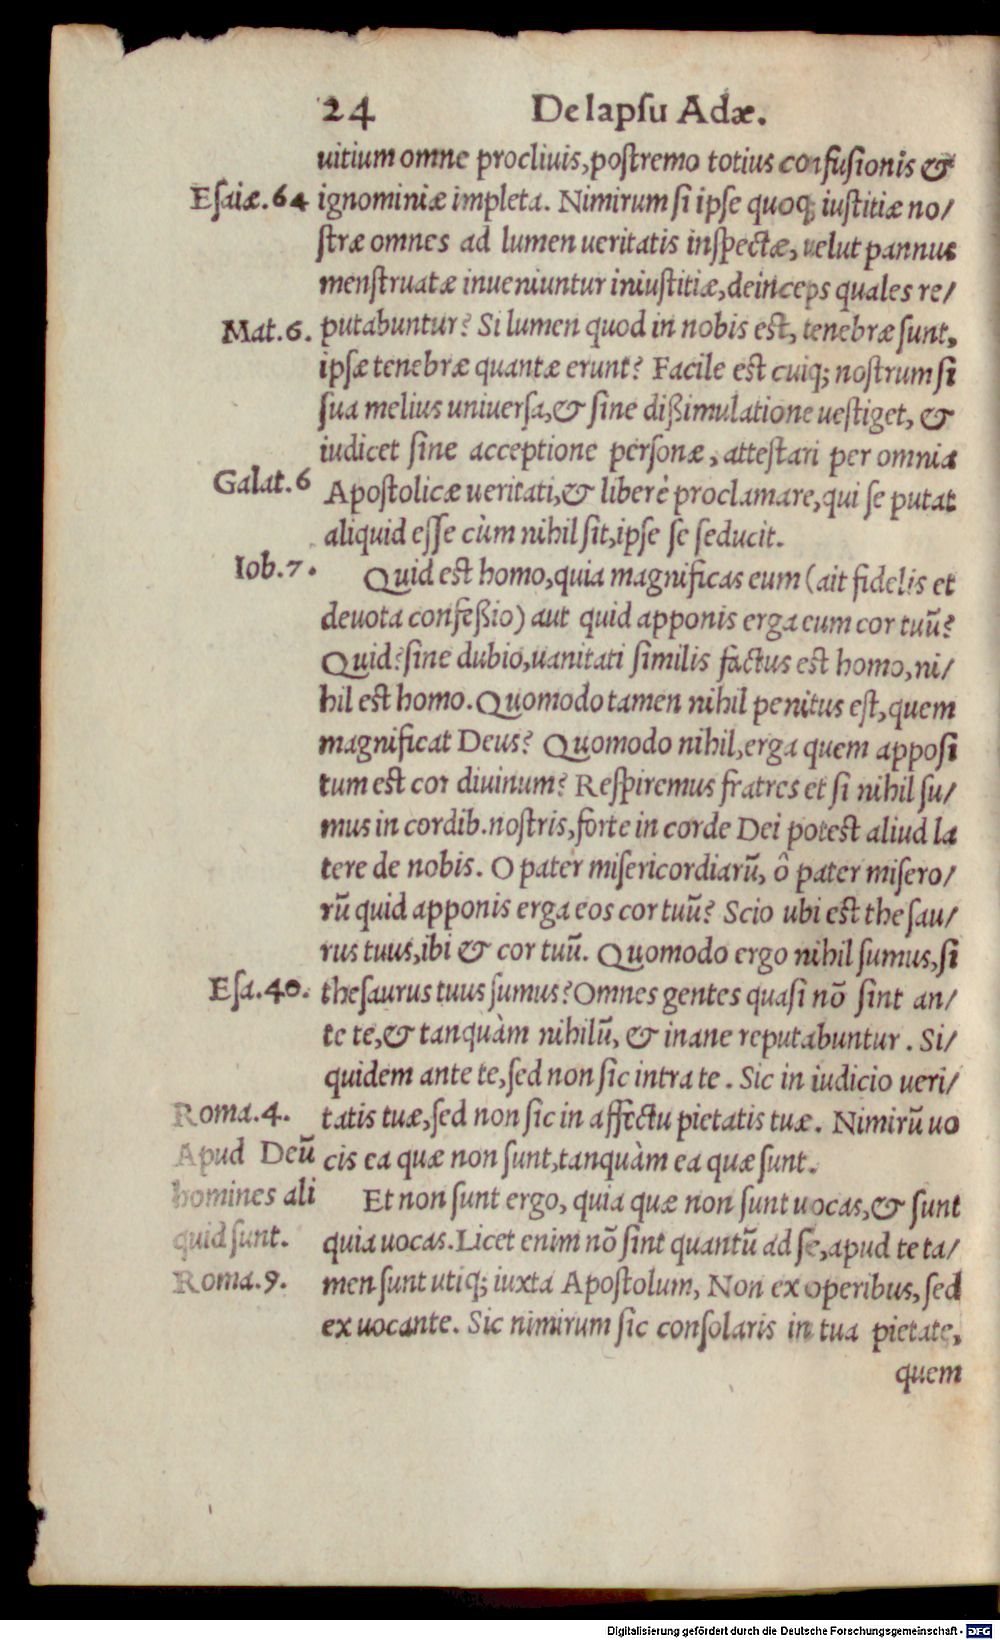 24 De lapſu Adæ.
uitium omne procliuis, poſtremo totius confuſionis &
Eſaiæ. 64
ignominiæ impleta. Nimirum ſi ipſe quoq; iuſtitiæ no/
ſtræ omnes ad lumen ueritatis inſpectæ, uelut pannus
menſtruatæ inueniuntur iniuſtitiæ, deinceps quales re/
Mat. 6.
putabuntur? Si lumen quod in nobis eſt, tenebræ ſunt,
ipſæ tenebræ quantæ erunt? Facile eſt cuiq; noſtrum ſi
ſua melius uniuerſa, & ſine dißimulatione ueſtiget, &
iudicet ſine acceptione perſonæ, atteſtari per omnia
Galat. 6
Apoſtolicæ ueritati, & liberè proclamare, qui ſe putat
aliquid eſſe cùm nihil ſit, ipſe ſe ſeducit.
Iob. 7.
Quid eſt homo, quia magnificas eum (ait fidelis et
deuota confeßio) aut quid apponis erga eum cor tuũ?
Quid? ſine dubio, uanitati ſimilis factus eſt homo, ni/
hil eſt homo. Quomodo tamen nihil penitus eſt, quem
magnificat Deus? Quomodo nihil, erga quem appoſi
tum eſt cor diuinum? Reſpiremus fratres et ſi nihil ſu/
mus in cordib. noſtris, forte in corde Dei poteſt aliud la
tere de nobis. O pater miſericordiarũ, ô pater miſero/
rũ quid apponis erga eos cor tuũ? Scio ubi eſt theſau/
rus tuus, ibi & cor tuũ. Quomodo ergo nihil ſumus, ſi
Eſa. 40.
theſaurus tuus ſumus? Omnes gentes quaſi nõ ſint an/
te te, & tanquàm nihilũ, & inane reputabuntur. Si/
quidem ante te, ſed non ſic intra te. Sic in iudicio ueri/
Roma. 4.
tatis tuæ, ſed non ſic in affectu pietatis tuæ. Nimirũ uo
Apud Deũ
cis ea quæ non ſunt, tanquàm ea quæ ſunt.
homines ali
Et non ſunt ergo, quia quæ non ſunt uocas, & ſunt
quid ſunt.
quia uocas. Licet enim nõ ſint quantũ ad ſe, apud te ta/
Roma. 9.
men ſunt utiq; iuxta Apoſtolum, Non ex operibus, ſed
ex uocante. Sic nimirum ſic conſolaris in tua pietate,
quem
Digitalisierung gefördert durch die Deutsche Forschungsgemeinschaft - DFG